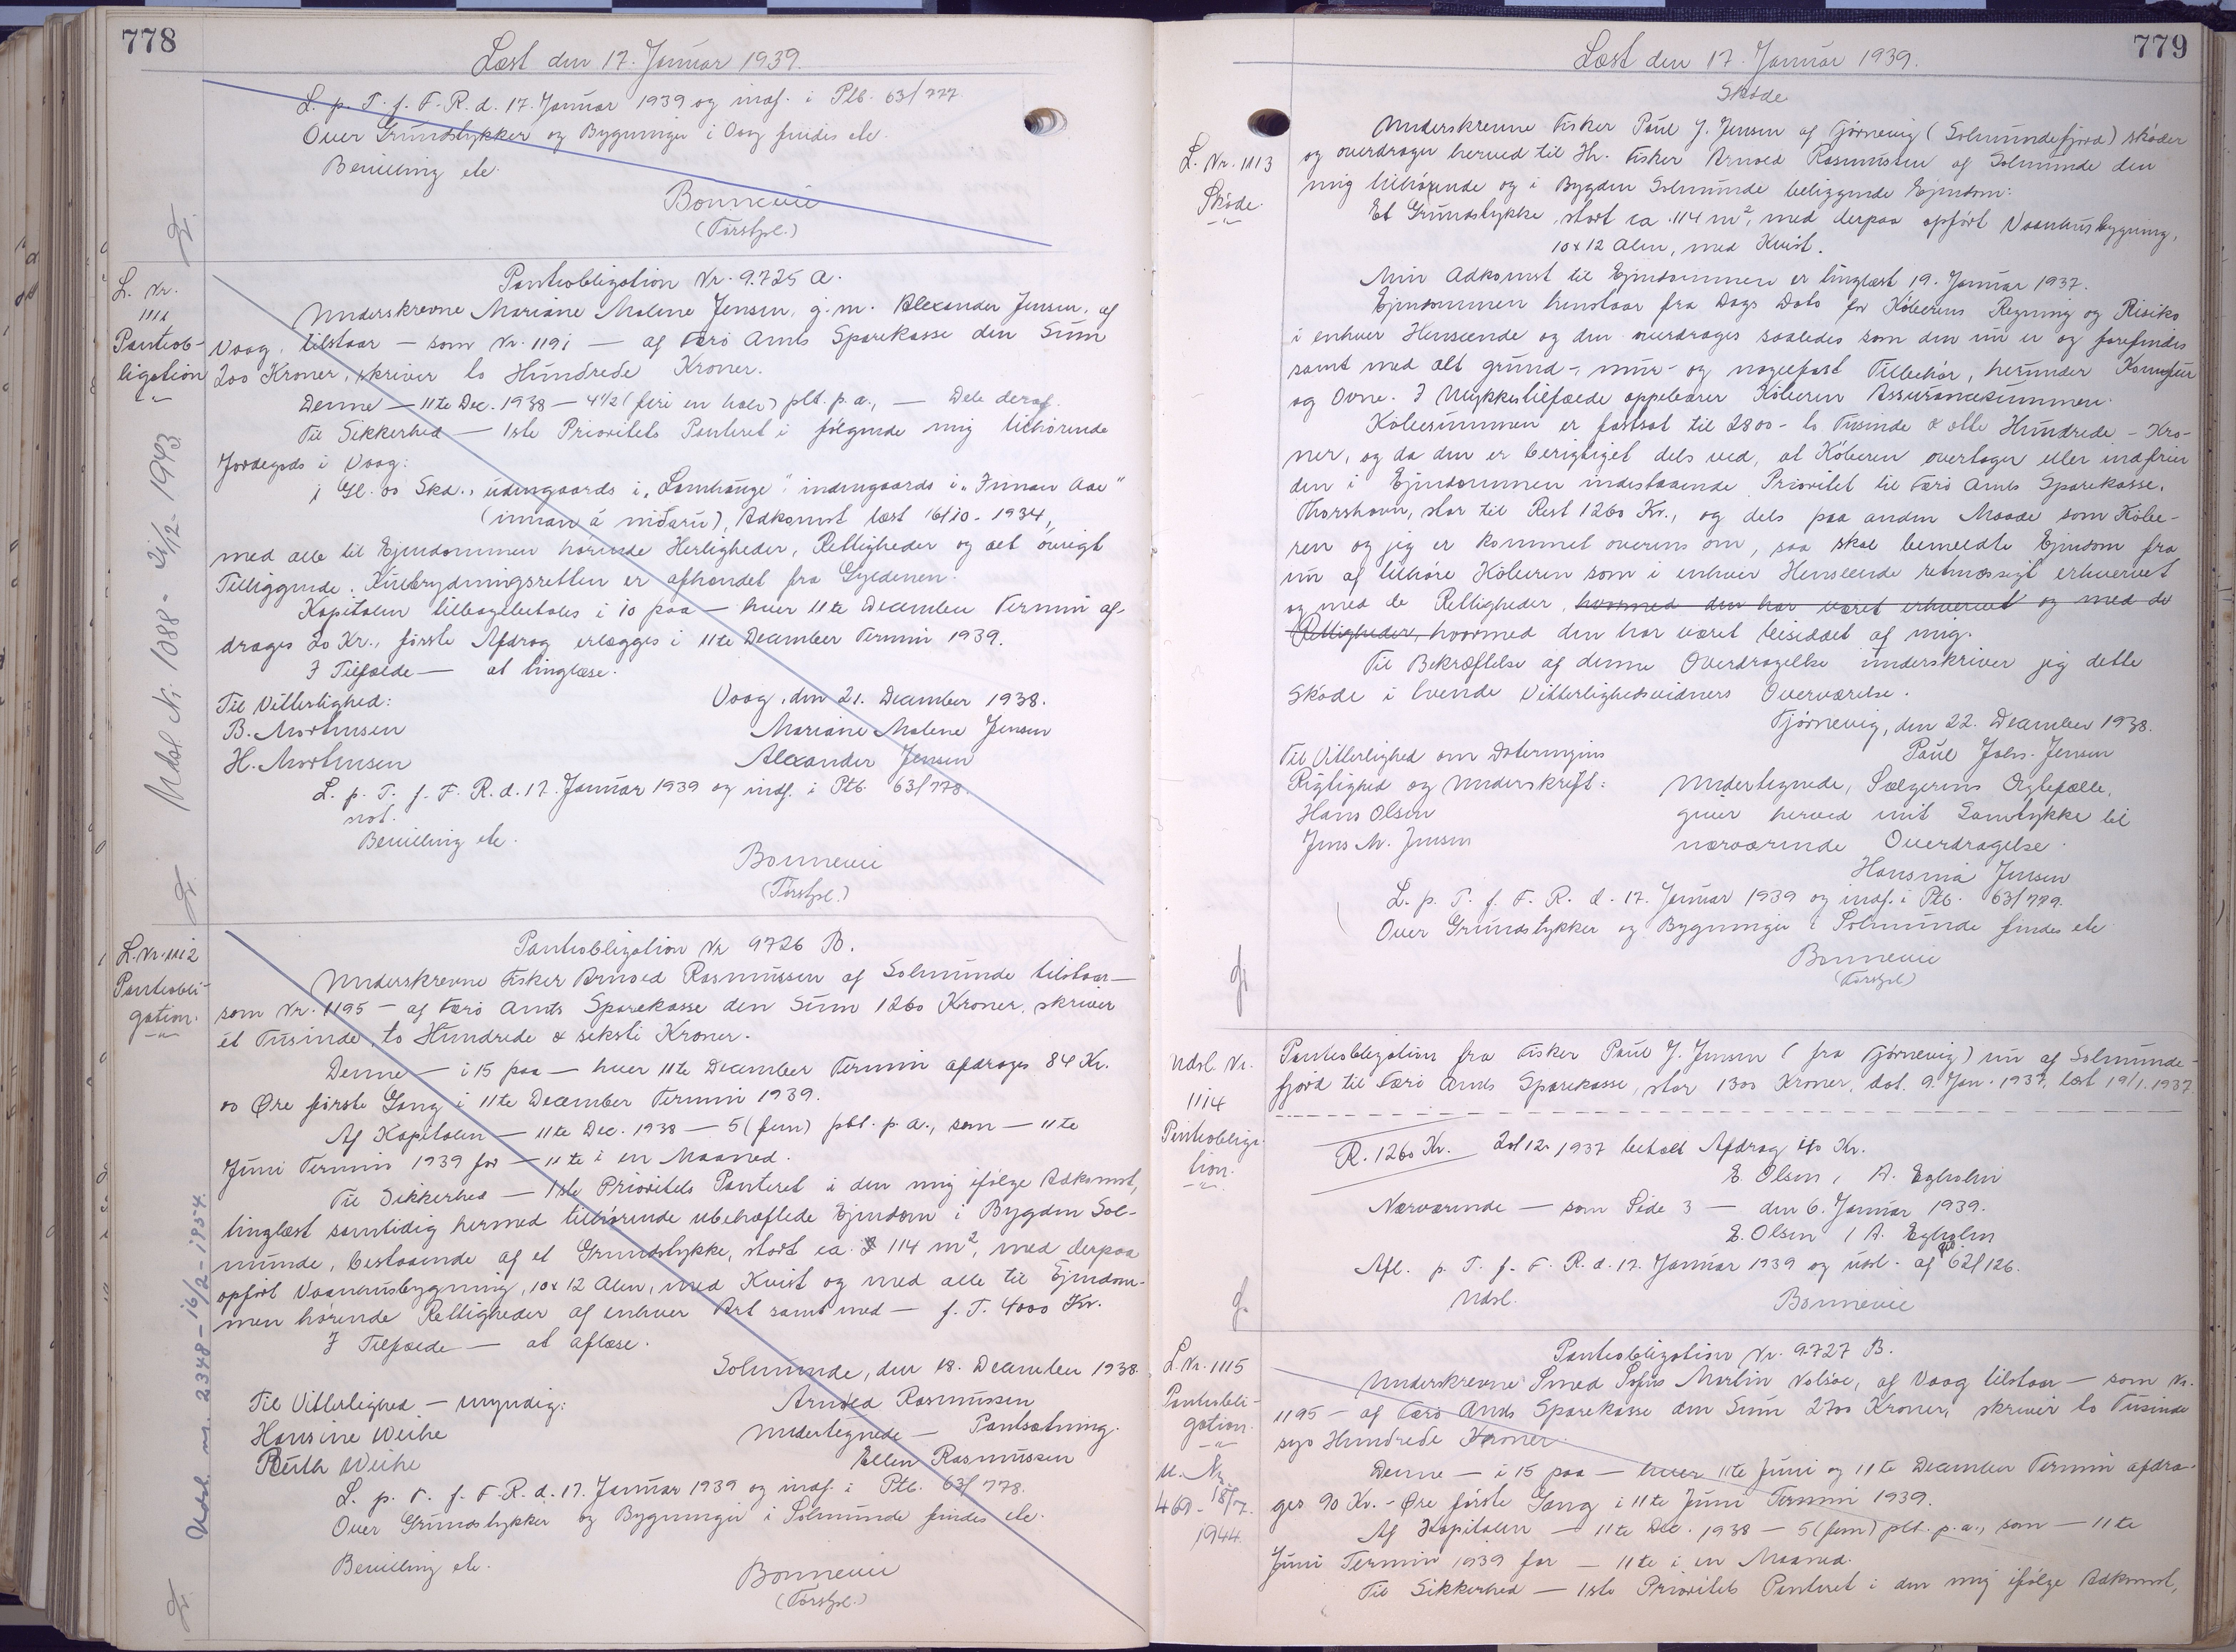 778
Læst den 17. Januar 1939.
L. p. T. f. F. R. d. 17. Januar 1939 og indf. i Ptb. 63/777.
Over Grundstykker og Bygninger i Vaag findes etc.
Bevilling etc.
Bonnevie
(Forstpl.)
L. Nr.
1111
Panteob-
ligation
Udsl. Nr. 1088 - 21/12 - 1943
Panteobligation Nr. 9.725 A.
Underskrevne Mariane Malene Jensen, g. m. Alexander Jensen, af
Vaag, tilstaar — som Nr. 1191 — af Færø Amts Sparekasse den Sum
200 Kroner, skriver to Hundrede Kroner.
Denne — 11te Dec. 1938 — 4½ (fire en halv) pCt. p. a., — Dele deraf.
Til Sikkerhed — 1ste Prioritets Panteret i følgende mig tilhørende
Jordegods i Vaag:
1 Gl. 00 Skd., udengaards i „Lamhauge“ indengaards i „Innan Aae“
(innan á niðaru), Adkomst læst 16/10 - 1934,
med alle til Ejendommen hørende Herligheder, Rettigheder og alt øvrigt
Tilliggende. Kultrydningsretten er afhændet fra Gyldenen.
Kapitalen tilbagebetales i 10 paa — hver 11te December Termin af-
drages 20 Kr., første Afdrag erlægges i 11te December Termin 1939.
I Tilfælde — at tinglæse.
Til Vitterlighed:
Vaag, den 21. December 1938.
B. Morthensen
Mariane Malene Jensen
H. Morthensen
Alexander Jensen
L. p. T. f. F. R. d. 17. Januar 1939 og indf. i Ptb. 63/778.
not.
Bevilling etc.
Bonnevie
(Forstpl.)
L. Nr. 1112
Panteobli-
gation.
Udsl. nr. 2348 - 16/2 - 1954.
Panteobligation Nr 9726 B.
Underskrevne Fisker Arnold Rasmussen af Solmunde tilstaar —
som Nr. 1195 — af Færø Amts Sparekasse den Sum 1260 Kroner, skriver
et Tusinde, to Hundrede & seksti Kroner.
Denne — i 15 paa — hver 11te December Termin afdrages 84 Kr.
00 Øre første Gang i 11te December Termin 1939.
Af Kapitalen — 11te Dec. 1938 — 5 (fem) pCt. p. a., som — 11te
Juni Termin 1939 for — 11te i en Maaned.
Til Sikkerhed — 1ste Prioritets Panteret i den mig ifølge Adkomst,
tinglæst samtidig hermed tilhørende ubehæftede Ejendom i Bygden Sol-
munde, bestaaende af et Grundstykke, stort ca. 114 m², med derpaa
opført Vaanhusbygning, 10 x 12 Alen, med Kvist og med alle til Ejendom-
men hørende Rettigheder af enhver Art samt med — f. T. 4000 Kr.
I Tilfælde — at aflæse.
Solmunde, den 18. December 1938.
Til Vitterlighed — myndig:
Arnold Rasmussen
Hansine Weihe
Undertegnede — Pantsætning.
Ruth Weihe
Ellen Rasmussen
L. p. T. f. F. R. d. 17. Januar 1939 og indf. i Ptb. 63/778.
Over Grundstykker og Bygninger i Solmunde findes etc.
Bevilling etc.
Bonnevie
(Forstpl.)
779
Læst den 17. Januar 1939.
Skøde
L. Nr. 1113
Skøde.
Underskrevne Fisker Paul J. Jensen af Tjørnevig (Solmundefjord) skøder
og overdrager herved til Hr. Fisker Arnold Rasmussen af Solmunde den
mig tilhørende og i Bygden Solmunde beliggende Ejendom:
Et Grundstykke, stort ca. 114 m², med derpaa opført Vaanhusbygning,
10 x 12 Alen, med Kvist.
Min Adkomst til Ejendommen er tinglæst 19. Januar 1937.
Ejendommen henstaar fra Dags Dato for Køberens Regning og Risiko
i enhver Henseende og den overdrages saaledes som den nu er og forefindes
samt med alt grund-, mur- og nagelfast Tilbehør, herunder Komfur
og Ovne. I Ulykkestilfælde oppebærer Køberen Assurancesummen.
Købesummen er fastsat til 2800 - to Tusinde & otte Hundrede - Kro-
ner, og da den er berigtiget dels ved, at Køberen overtager eller indfrier
den i Ejendommen indestaaende Prioritet til Færø Amts Sparekasse,
Thorshavn, stor til Rest 1260 Kr., og dels paa anden Maade som Købe-
ren og jeg er kommet overens om, saa skal bemeldte Ejendom fra
nu af tilhøre Køberen som i enhver Henseende retmæssigt erhvervet
og med de Rettigheder, hvormed den har været erhvervet og med de
Rettigheder, hvormed den har været besiddet af mig.
Til Bekræftelse af denne Overdragelse underskriver jeg dette
Skøde i tvende Vitterlighedsvidners Overværelse.
Tjørnevig, den 22. December 1938.
Til Vitterlighed om Dateringens
Paul Johs. Jensen
Rigtighed og Underskrift:
Undertegnede, Sælgerens Ægtefælle,
Hans Olsen
giver herved mit Samtykke til
Jens M. Jensen
nærværende Overdragelse.
Hansina Jensen
L. p. T. f. F. R. d. 17. Januar 1939 og indf. i Ptb. 63/779.
Over Grundstykker og Bygninger i Solmunde findes etc.
Bonnevie
(Forstpl.)
Udsl. Nr.
1114
Panteobliga-
tion.
Panteobligation fra Fisker Paul J. Jensen (fra Tjørnevig) nu af Solmunde-
fjord til Færø Amts Sparekasse, stor 1300 Kroner, dat. 9. Jan. 1937, læst 19/1. 1937.
R. 1260 Kr. 20/12. 1937 betalt Afdrag 40 Kr.
E. Olsen / A. Egholm
Nærværende — som Side 3 — den 6. Januar 1939.
E. Olsen / A. Egholm
Afl. p. T. f. F. R. d. 17. Januar 1939 og udsl. af Ptb 62/126.
Udsl.
Bonnevie
L. Nr. 1115
Panteobli-
gation.
U. Nr.
460 - 18/7.
1944.
Panteobligation Nr. 9727 B.
Underskrevne Smed Sofus Martin Volsøe, af Vaag tilstaar — som Nr.
1195 — af Færø Amts Sparekasse den Sum 2700 Kroner, skriver to Tusinde
syv Hundrede Kroner.
Denne — i 15 paa — hver 11te Juni og 11te December Termin afdra-
ges 90 Kr. - Øre første Gang i 11te Juni Termin 1939.
Af Kapitalen — 11te Dec. 1938 — 5 (fem) pCt. p. a., som — 11te
Juni Termin 1939 for — 11te i en Maaned.
Til Sikkerhed — 1ste Prioritets Panteret i den mig ifølge Adkomst,